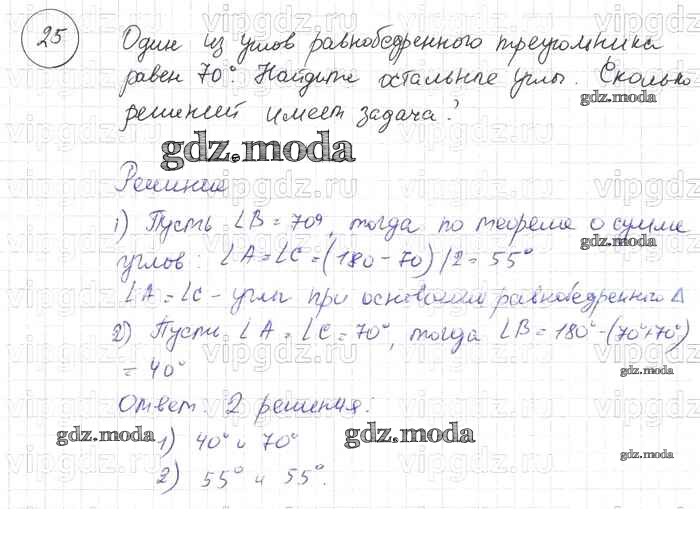 25
Один из углов равнобедренного треугольника
равен 70°. Найдите остальные углы. Сколько
gdz.moda
решений имеет задача?
gdz.moda
Решение
1) Пусть ∠B = 70°, тогда по теореме о сумме
gdz.moda
углов: ∠A = ∠C = (180 - 70) / 2 = 55°
∠A = ∠C - углы при основании равнобедренного Δ
2) Пусть ∠A = ∠C = 70°, тогда ∠B = 180° - (70°+70°)
= 40°
gdz.moda
Ответ: 2 решения:
gdz.moda
1) 40° и 70°
gdz.moda
gdz.moda
2) 55° и 55°.
vipgdz.ru